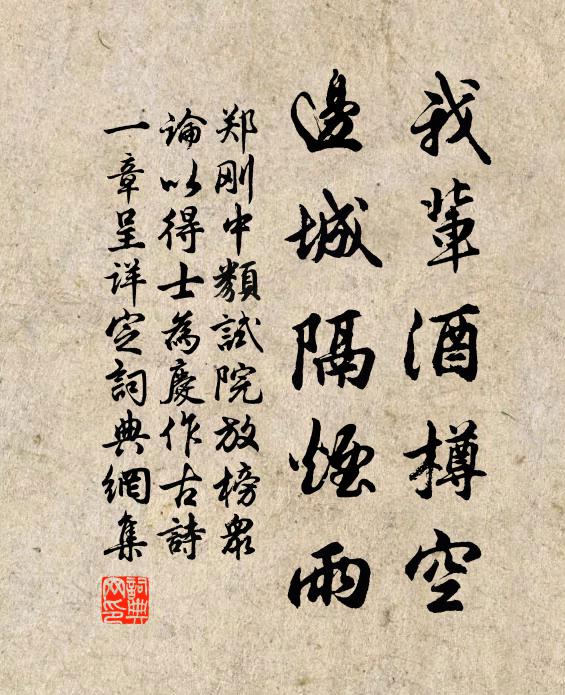 我輩酒樽空
邊城隔煙雨
郑刚中類試院放榜衆
论以得士為慶作古詩
一章呈详定詞典網集